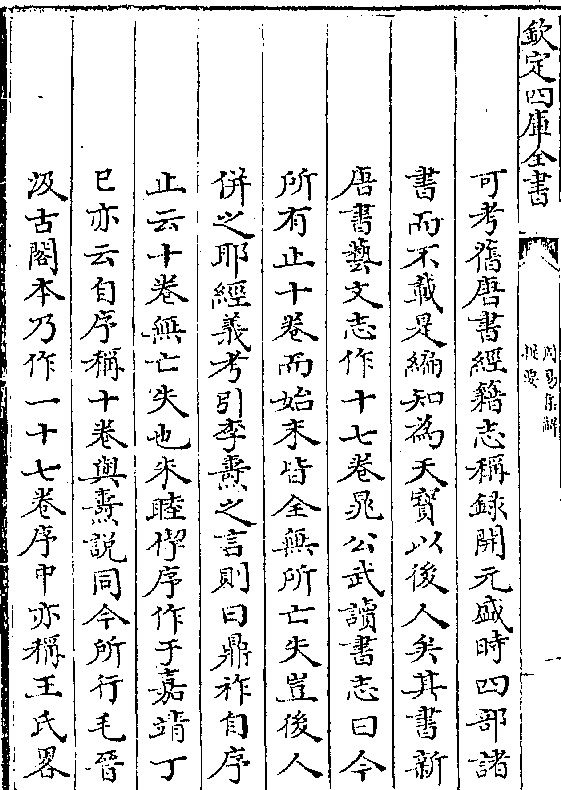 欽定四庫全書
周易集解
提要
可考舊唐書經籍志稱錄開元盛時四部諸
書而不載是編知為天寶以後人矣其書新
唐書藝文志作十七卷晁公武讀書志曰今
所有止十卷而始末皆全無所亡失豈後人
併之耶經義考引李燾之言則曰鼎祚自序
止云十卷無亡失也朱睦㮮序作于嘉靖丁
巳亦云自序稱十卷與燾說同今所行毛晉
汲古閣本乃作一十七卷序中亦稱王氏畧
一